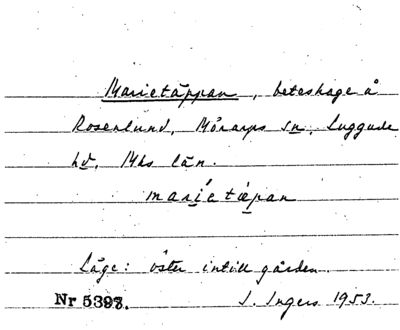 Marietäppan, beteshage å
Rosenlund, Mörarps sn, Luggude
hd, Mhs län.
marietäpan
Läge: öster intill gården.
Nr 5398. I. Ingers 1953.